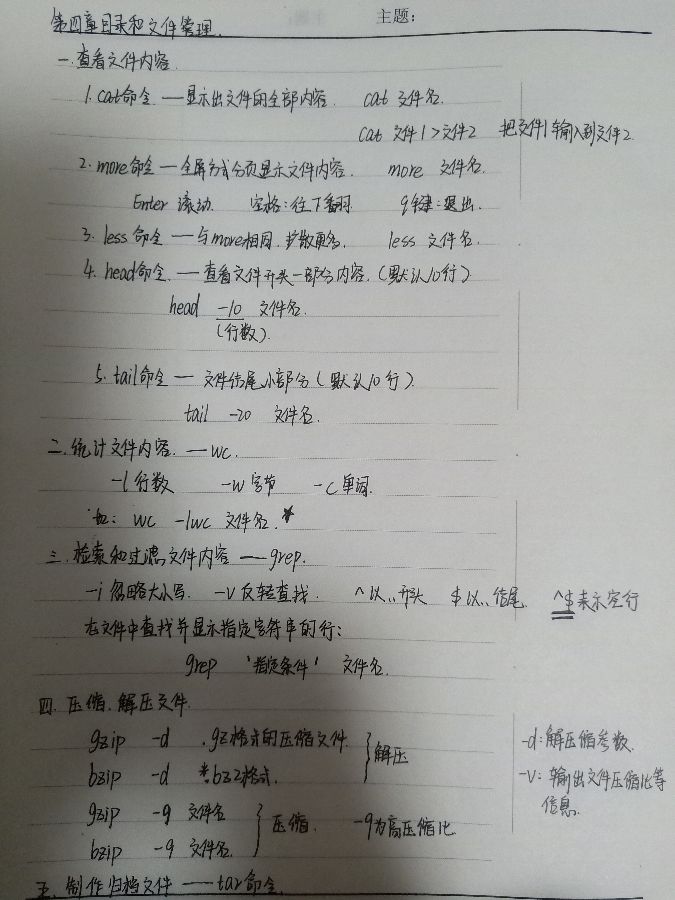 主题:
第四章目录和文件管理.
一.查看文件内容.
1. cat命令 — 显示出文件的全部内容. cat 文件名.
cat 文件1 > 文件2 把文件1输入到文件2
2. more命令 — 全屏方式分页显示文件内容. more 文件名.
Enter 滚动. 空格:往下翻. q键:退出.
3. less 命令 — 与more相同. 扩散更多. less 文件名.
4. head命令. — 查看文件开头一部分内容. (默认10行)
head -10 文件名.
(行数).
5. tail命令 — 文件结尾小部分 (默认10行).
tail -20 文件名.
二.统计文件内容. — wc.
-l 行数 -w 字节 -c 单词.
如: wc -lwc 文件名. *
三.检索和过滤文件内容 — grep.
-i 忽略大小写. -v 反转查找. ^以..开头 $以..结尾. ^$表示空行
在文件中查找并显示指定字符串的行:
grep '指定条件' 文件名.
四.压缩.解压文件.
gzip -d .gz格式的压缩文件. } 解压
bzip -d *.bz2格式.
-d:解压缩参数.
-v: 输出文件压缩比等
信息.
gzip -9 文件名 } 压缩. -9为高压缩比.
bzip -9 文件名.
五.制作归档文件 — tar命令.